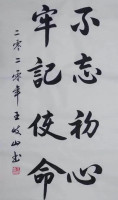 不忘初心
牢記使命
二零二零年王岐山書